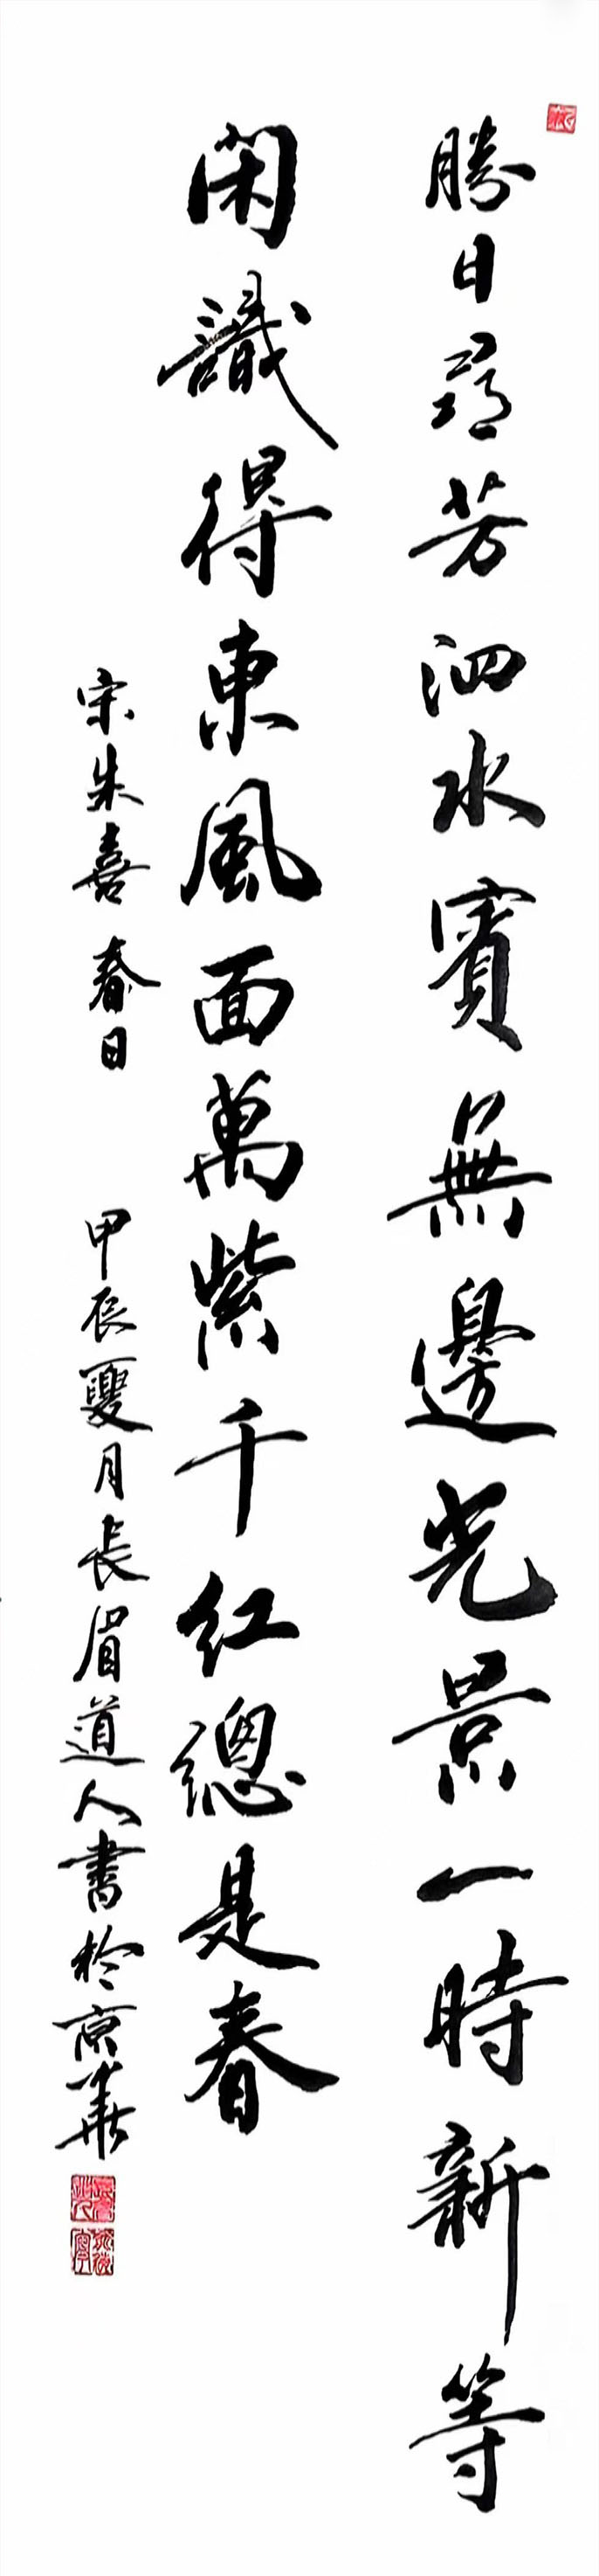 勝日尋芳泗水賓無邊光景一時新等
閑識得東風面萬紫千紅總是春
宋朱喜春日 甲辰夏月長眉道人書於京華